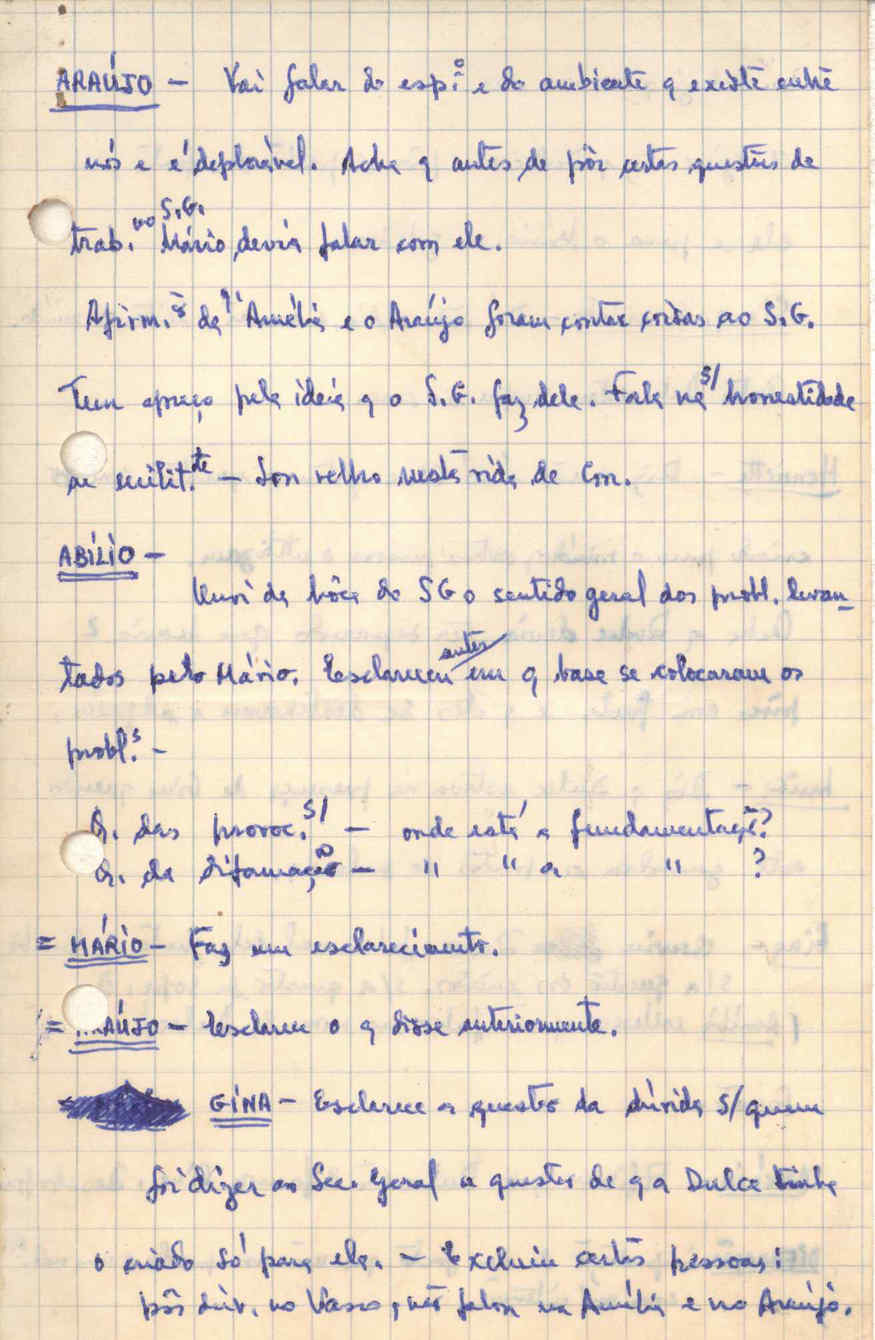 ARAÚJO – Vai falar do esp.º e do ambiente q existe entre
nós e é deplorável. Acha q antes de pôr estas questões de
trab. no S.G. Mário devia falar com ele.
Afirm. de q Amélia e o Araújo foram contar coisas ao S.G.
Tem apreço pela ideia q o S.G. faz dele. Fala na s/ honestidade
de milit.te – Sou velho nesta vida de
ABÍLIO –
Ouvi da bôca do SG o sentido geral dos probl. levan-
tados pelo Mário. Esclareceu antes em q base se colocaram os
probl.s –
Q. das provoc. s/ – onde está a fundamentação?
Q. da difamação – " " a " ?
= MÁRIO – Faz um esclarecimento.
= ARAÚJO – Esclarece o q disse anteriormente.
GINA – Esclarece a questão da dúvida s/ quem
foi dizer ao Sec. Geral a questão de q a Dulce tinha
o criado só para ela. – Excluiu certas pessoas:
pôs dúv. no Vasco, não falou na Amélia e no Araújo.